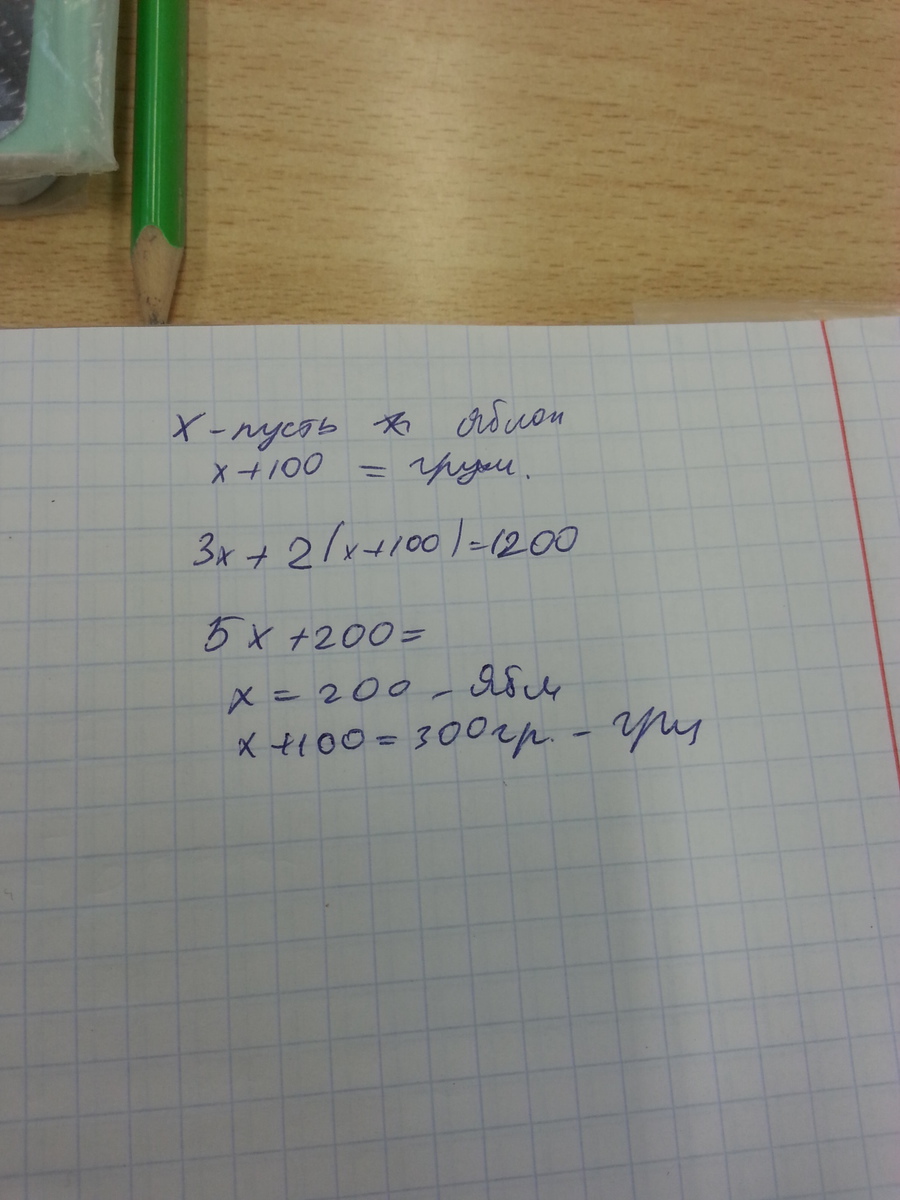 х - пусть яблок
х+100 = груш.
3х + 2(х+100)=1200
5х +200=
х = 200 - Ябл
х+100=300гр. - груш